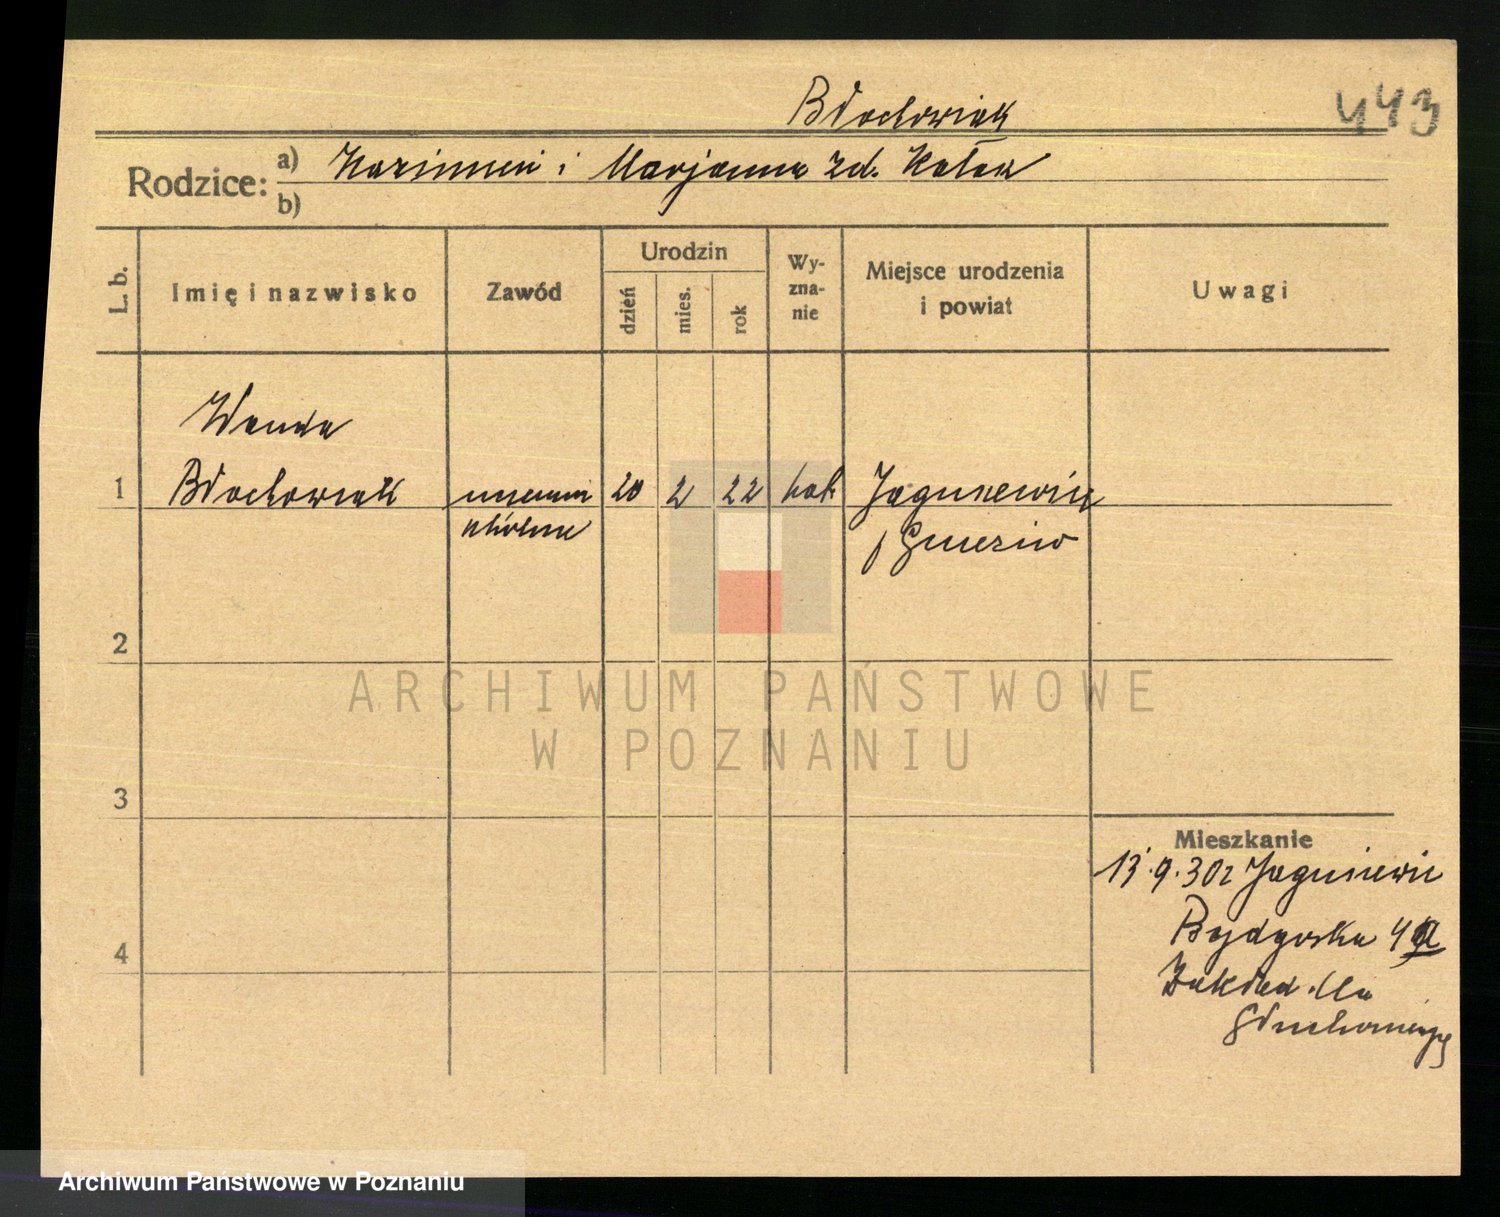 Błochowiak
443
Rodzice: a) Kazimierz i Marjanna zd. Kałek
b)
L. b.
Imię i nazwisko
Zawód
Urodzin
dzień
mies.
rok
Wy-
zna-
nie
Miejsce urodzenia
i powiat
Uwagi
Wanda
1 Błochowiak uczenni 20 2 22 kat. Jaguniewice
szkolna p Gniezno
2
ARCHIWUM PAŃSTWOWE
W POZNANIU
3
Mieszkanie
13.9.30 z Jaguniewic
Bydgoska 4a
4
Zakład dla
Głuchoniemych
Archiwum Państwowe w Poznaniu